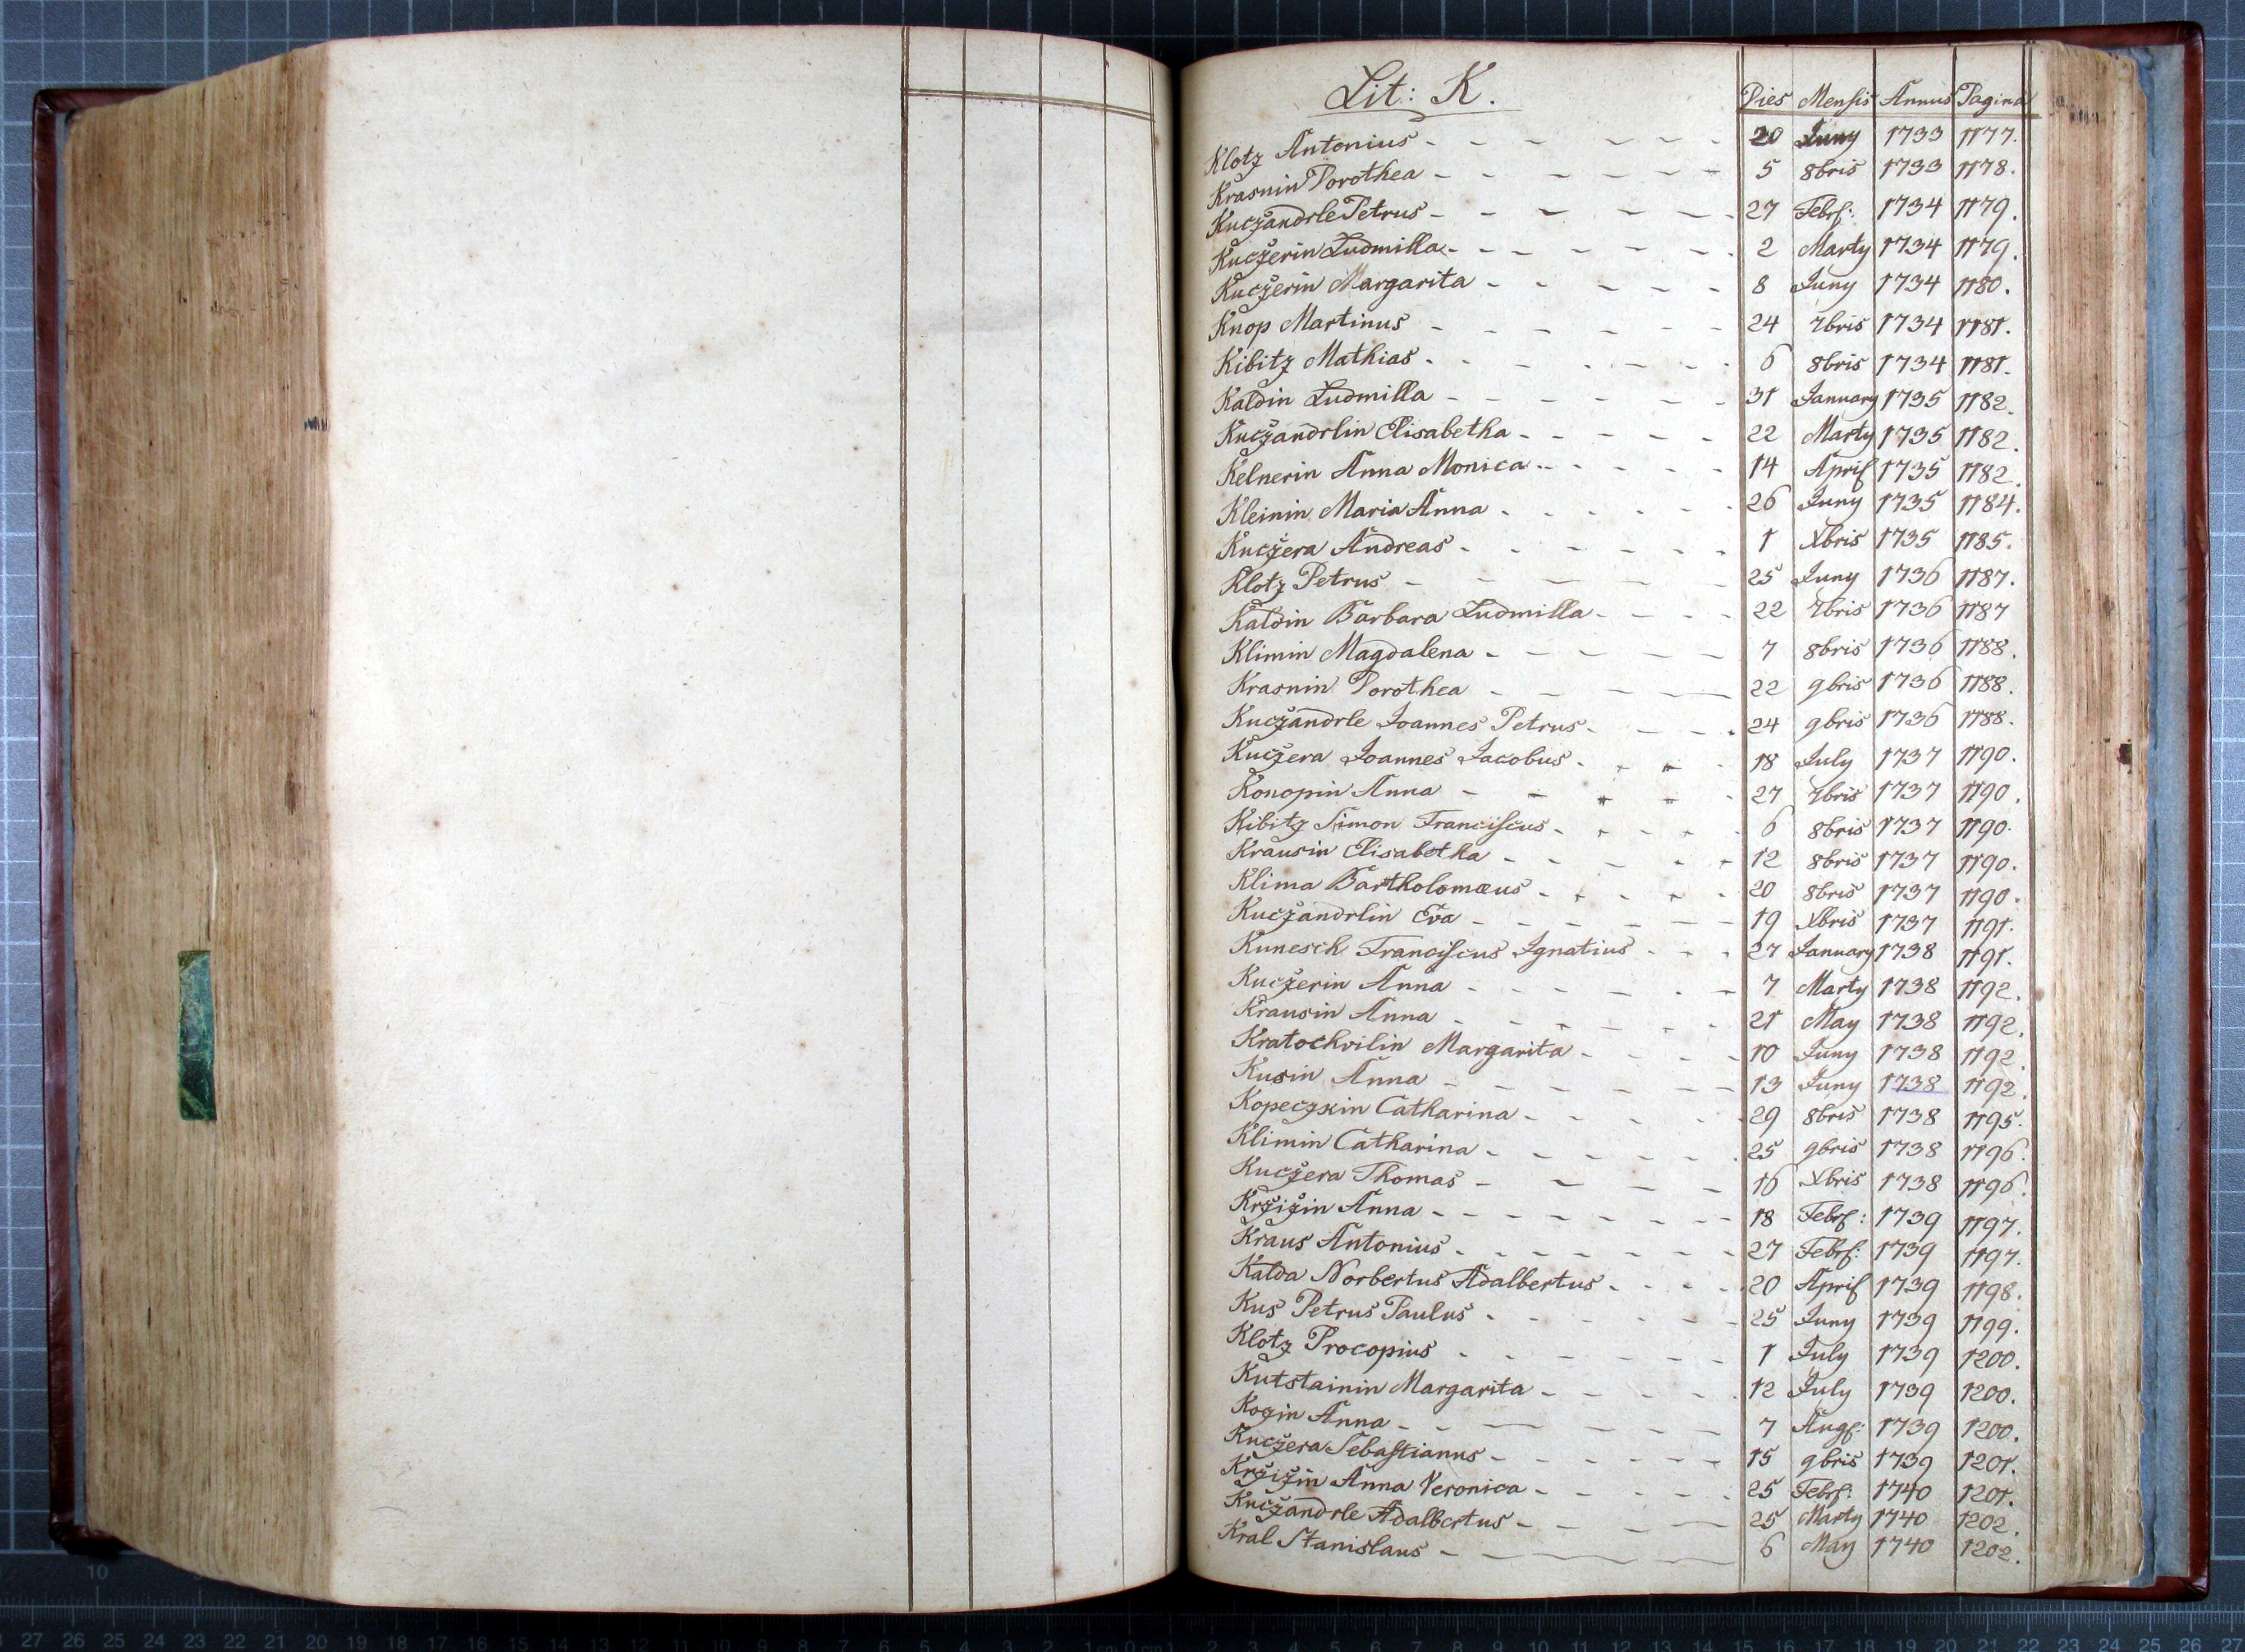 Lit: K.
Dies Mensis Annus Pagina
Klotz Antonius 20 Juny 1733 1177.
Krasnin Dorothea 5 8bris 1733 1178.
Kuczandrle Petrus 27 Febr: 1734 1179.
Kuczerin Ludmilla 2 Marty 1734 1179.
Kuczerin Margarita 8 Juny 1734 1180.
Knop Martinus 24 7bris 1734 1181.
Kibitz Mathias 6 8bris 1734 1181.
Kaldin Ludmilla 31 January 1735 1182.
Kuczandrlin Elisabetha 22 Marty 1735 1182.
Kelnerin Anna Monica 14 April 1735 1182.
Kleinin Maria Anna 26 Juny 1735 1184.
Kuczera Andreas 1 Xbris 1735 1185.
Klotz Petrus 25 Juny 1736 1187.
Kaldin Barbara Ludmilla 22 7bris 1736 1187
Klimin Magdalena 7 8bris 1736 1188.
Krasnin Dorothea 22 9bris 1736 1188.
Kuczandrle Joannes Petrus 24 9bris 1736 1188.
Kuczera Joannes Jacobus 18 July 1737 1190.
Konopin Anna 27 7bris 1737 1190.
Kibitz Simon Franciscus 6 8bris 1737 1190.
Krausin Elisabetha 12 8bris 1737 1190.
Klima Bartholomæus 20 8bris 1737 1190.
Kuczandrlin Eva 19 Xbris 1737 1191.
Kunesch Franciscus Ignatius 27 January 1738 1191.
Kuczerin Anna 7 Marty 1738 1192.
Krausin Anna 21 May 1738 1192.
Kratochvilin Margarita 10 Juny 1738 1192.
Kusin Anna 13 Juny 1738 1192.
Kopeczkin Catharina 29 8bris 1738 1195.
Klimin Catharina 25 9bris 1738 1196.
Kuczera Thomas 16 Xbris 1738 1196.
Krzizin Anna 18 Febr: 1739 1197.
Kraus Antonius 27 Febr: 1739 1197.
Kalda Norbertus Adalbertus 20 April 1739 1198.
Kus Petrus Paulus 25 Juny 1739 1199.
Klotz Procopius 1 July 1739 1200.
Kutstainin Margarita 12 July 1739 1200.
Kozin Anna 7 Aug: 1739 1200.
Kuczera Sebastianus 15 9bris 1739 1201.
Krzizin Anna Veronica 25 Febr: 1740 1201.
Kuczandrle Adalbertus 25 Marty 1740 1202.
Kral Stanislaus 6 May 1740 1202.